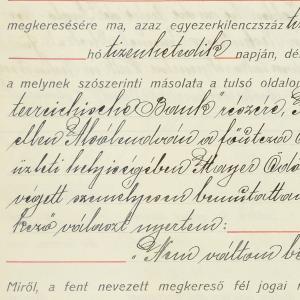 megkeresésére ma, azaz egyezerkilenczszáz ti
hó tizenhetedik napján, dé
a melynek szószerinti másolata a tulsó oldalo
terreichische Bank" részére,
ellen Moólendván a főutcza
üzleti helyiségében Mayer Ödö
végett személyesen bemutattam
kező választ nyertem:
„Nem váltom be
Miről, a fent nevezett megkereső fél jogai m